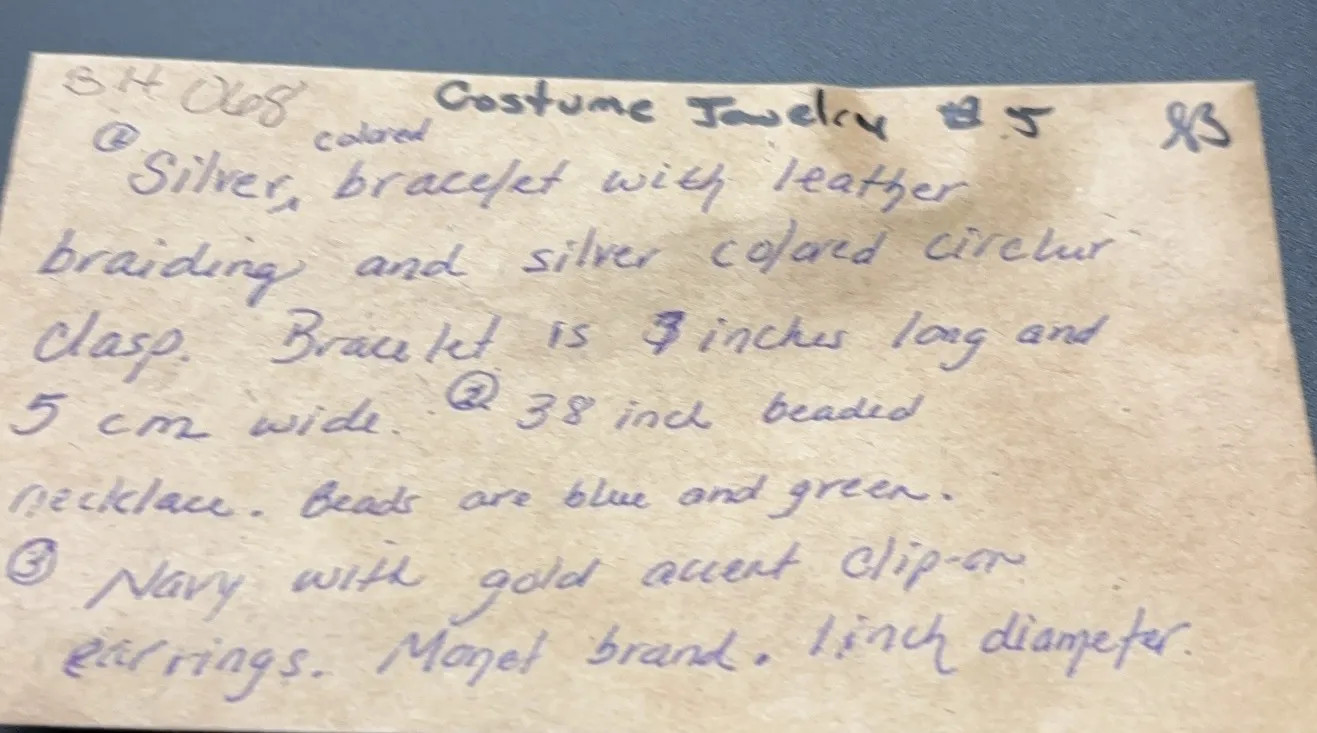 BH 068 Costume Jewelry # 5
colored
① Silver^ bracelet with leather
braiding and silver colored circlur
clasp. Bracelet is 7 inches long and
5 cm wide. ② 38 inch beaded
necklace. Beads are blue and green.
③ Navy with gold accent clip-on
earrings. Monet brand. 1 inch diameter.